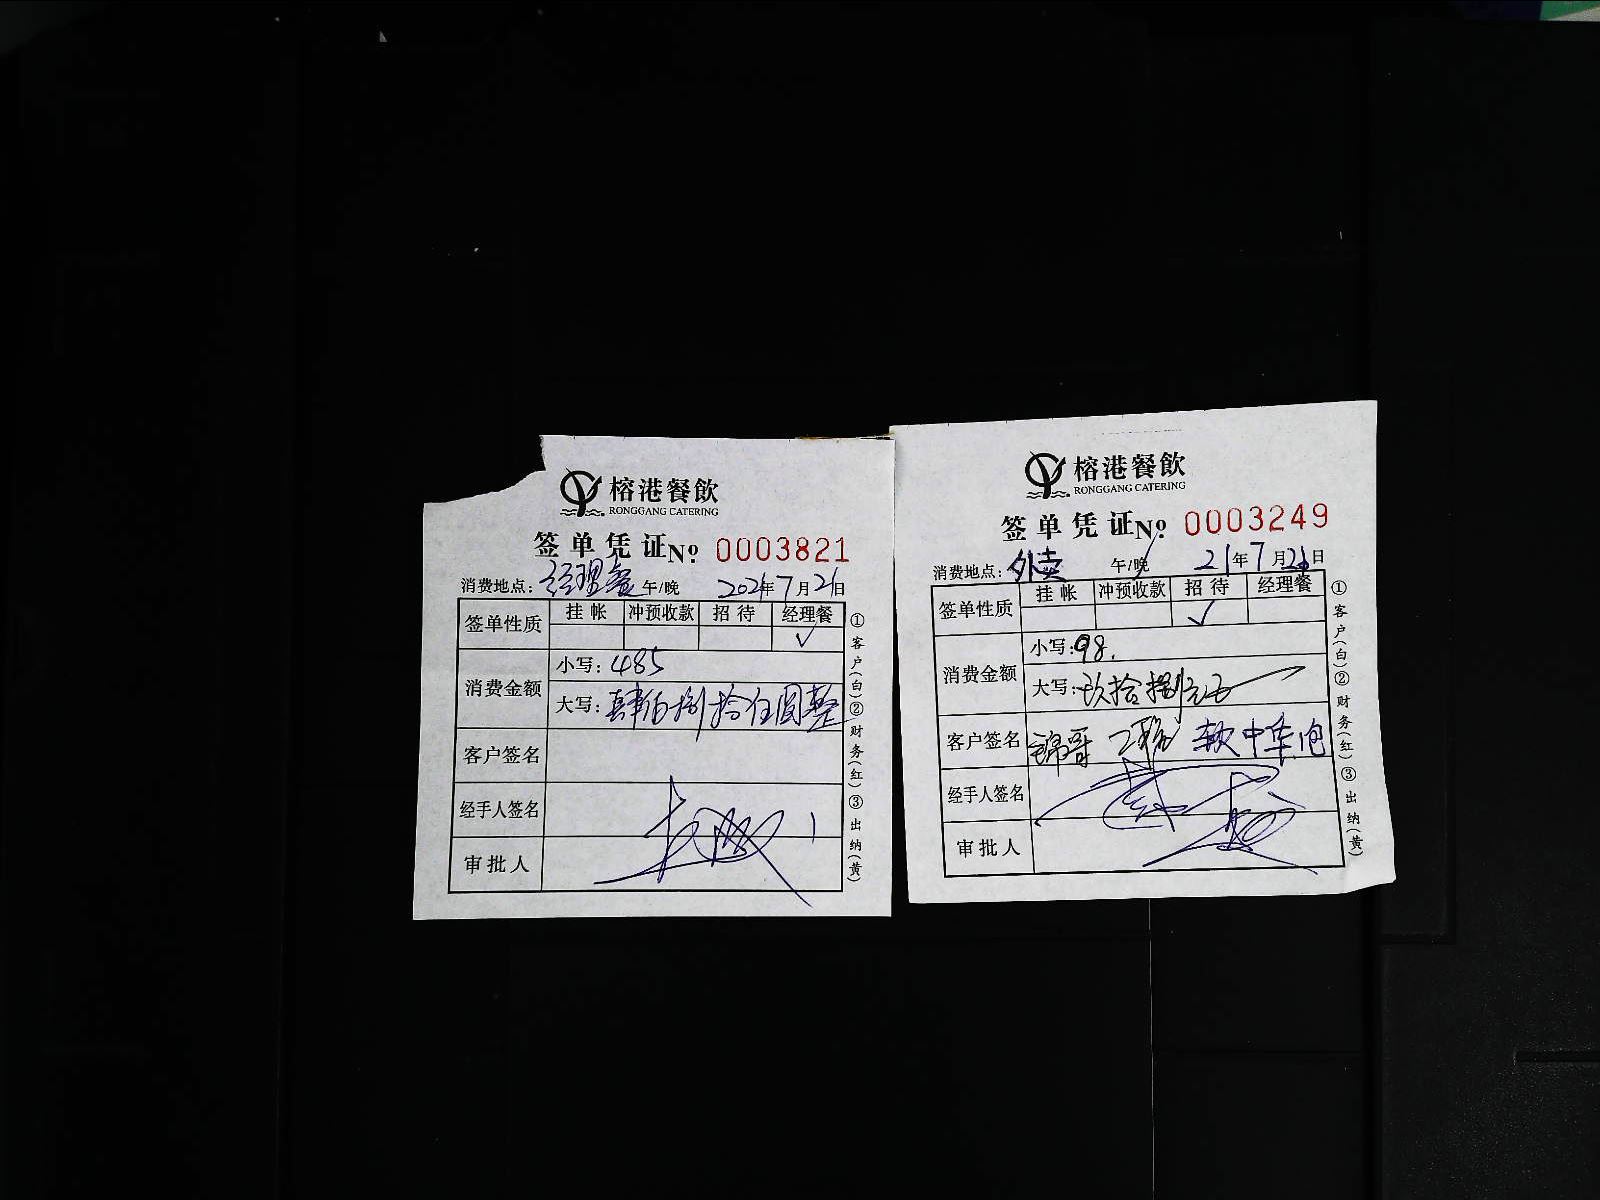 榕港餐飲
RONGGANG CATERING
签单凭证№ 0003821
消费地点：经理餐 午/晚 2021年7月21日
签单性质 挂帐 冲预收款 招待 经理餐
✓
消费金额 小写：485
大写：肆佰捌拾伍圆整
客户签名
经手人签名
审批人
①客户(白)②财务(红)③出纳(黄)
榕港餐飲
RONGGANG CATERING
签单凭证№ 0003249
消费地点：外卖 午/晚 21年7月21日
签单性质 挂帐 冲预收款 招待 经理餐
✓
消费金额 小写：98.
大写：玖拾捌元正
客户签名 锦哥 软中华1包
经手人签名
审批人
①客户(白)②财务(红)③出纳(黄)